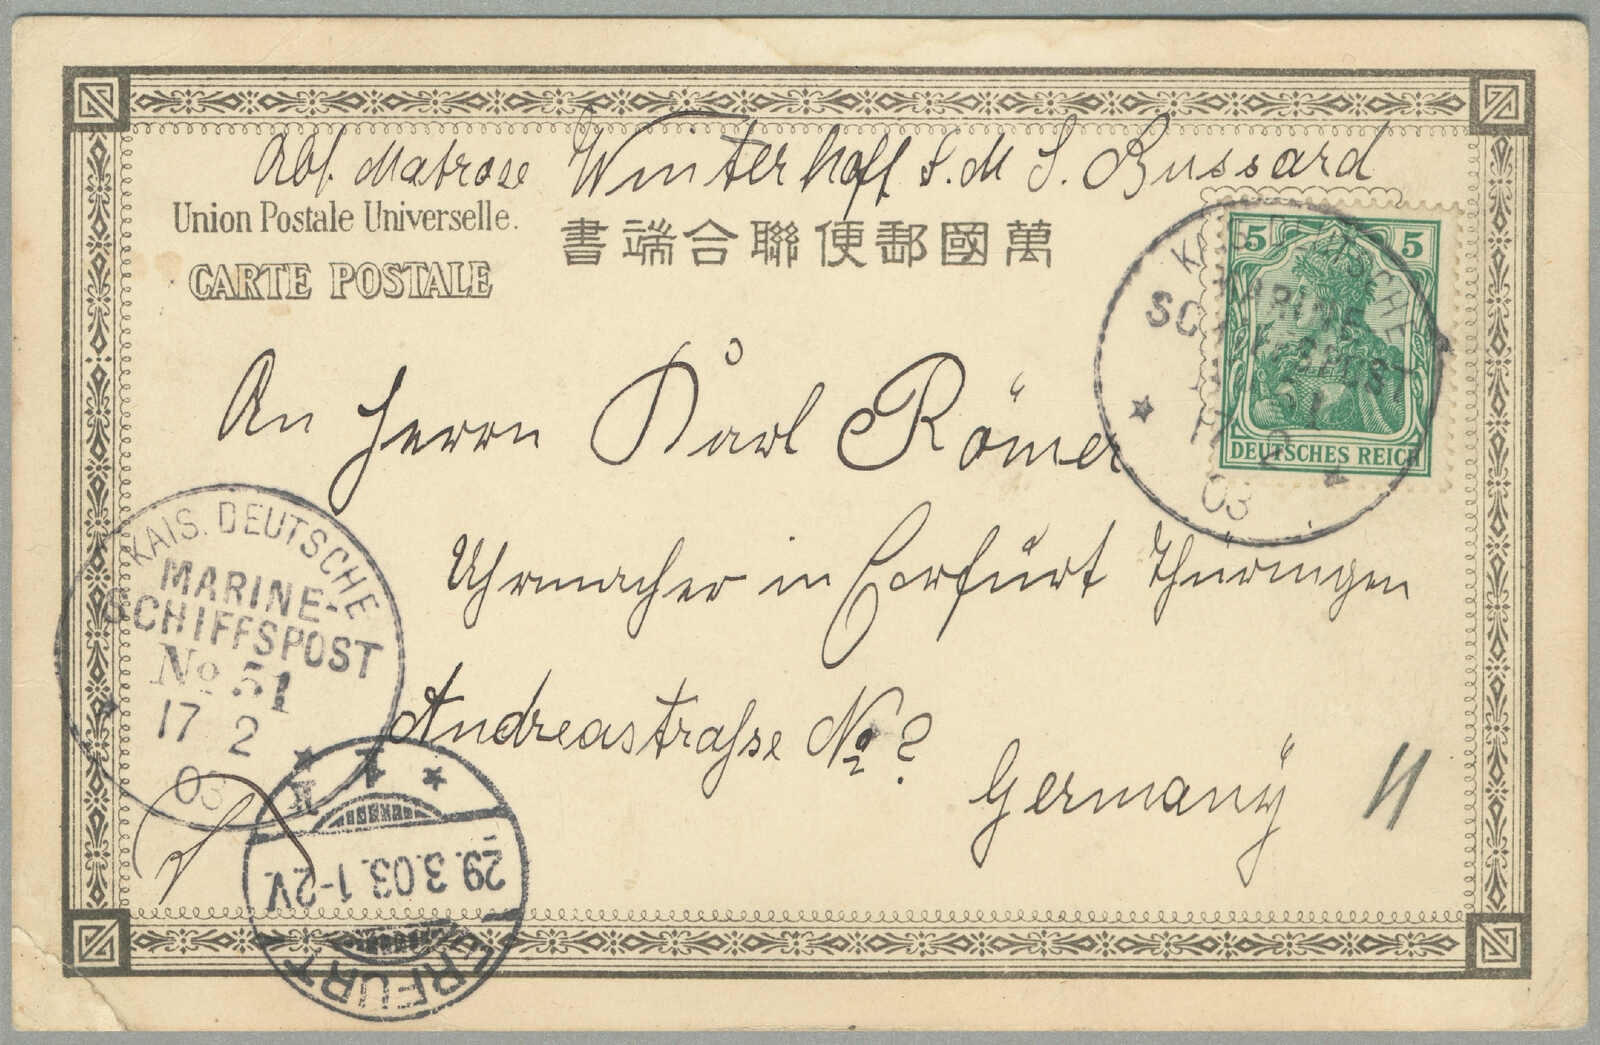 Abs. Matrose Winterhoff S. M. S. Bussard
Union Postale Universelle.
書端合聯便郵國萬
CARTE POSTALE
5 5
DEUTSCHES REICH
KAIS. DEUTSCHE
MARINE-
SCHIFFSPOST
No 51
17 2
03
An Herrn Karl Römer
Uhrmacher in Erfurt Thüringen
Andreastraße No ?
Germany
KAIS. DEUTSCHE
MARINE-
SCHIFFSPOST
No 51
17 2
03
ERFURT
29.3.03.1-2V.